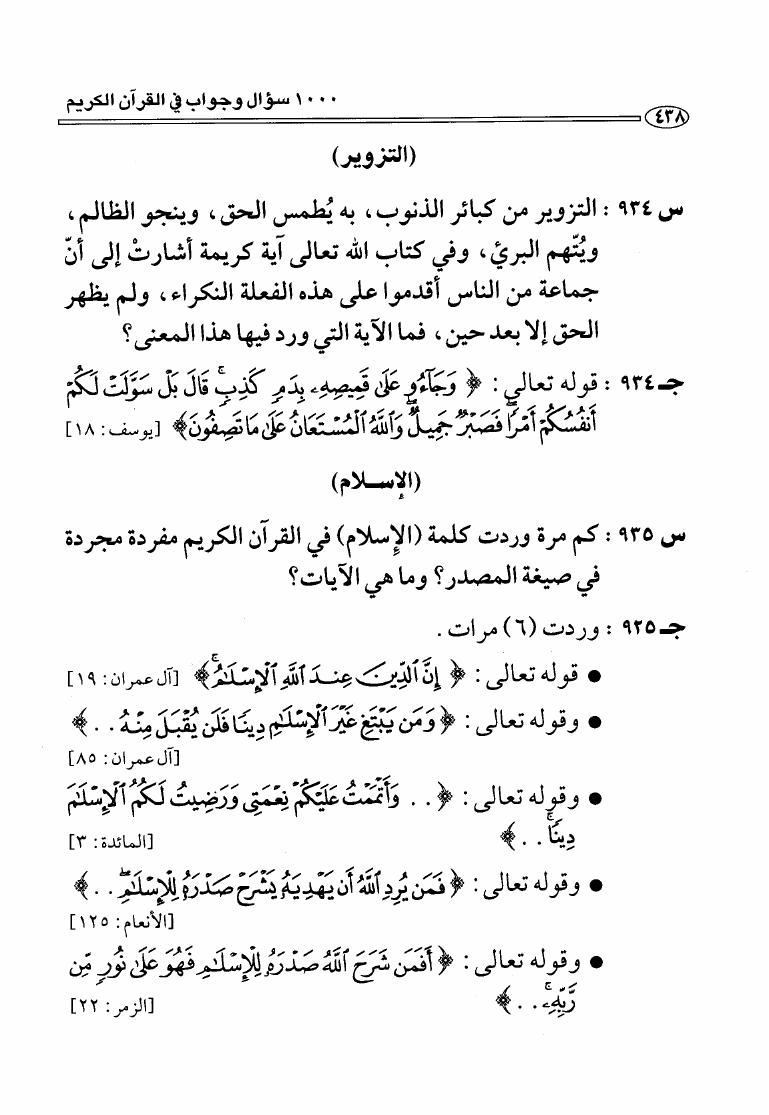 ١٠٠٠ سؤال وجواب في القرآن الكريم
٤٣٨
(التزوير)
س ٩٣٤ : التزوير من كبائر الذنوب، به يُطمس الحق، وينجو الظالم،
ويُتّهم البريُ، وفي كتاب الله تعالى آية كريمة أشارتْ إلى أنّ
جماعة من الناس أقدموا على هذه الفعلة النكراء، ولم يظهر
الحق إلا بعد حين، فما الآية التي ورد فيها هذا المعنى؟
جـ ٩٣٤ : قوله تعالى: ﴿ وَجَآءُو عَلَىٰ قَمِيصِهِۦ بِدَمٍ كَذِبٍۚ قَالَ بَلْ سَوَّلَتْ لَكُمْ
أَنفُسُكُمْ أَمْرًاۖ فَصَبْرٌ جَمِيلٌۖ وَٱللَّهُ ٱلْمُسْتَعَانُ عَلَىٰ مَا تَصِفُونَ﴾ [يوسف: ١٨]
(الإسلام)
س ٩٣٥ : كم مرة وردت كلمة (الإسلام) في القرآن الكريم مفردة مجردة
في صيغة المصدر؟ وما هي الآيات؟
جـ ٩٢٥ : وردت (٦) مرات.
• قوله تعالى: ﴿ إِنَّ ٱلدِّينَ عِندَ ٱللَّهِ ٱلْإِسْلَٰمُۗ﴾ [آل عمران: ١٩]
• وقوله تعالى: ﴿ وَمَن يَبْتَغِ غَيْرَ ٱلْإِسْلَٰمِ دِينًا فَلَن يُقْبَلَ مِنْهُ . . ﴾
[آل عمران: ٨٥]
• وقوله تعالى: ﴿ . . وَأَتْمَمْتُ عَلَيْكُمْ نِعْمَتِى وَرَضِيتُ لَكُمُ ٱلْإِسْلَٰمَ
دِينًاۚ . . ﴾ [المائدة: ٣]
• وقوله تعالى: ﴿ فَمَن يُرِدِ ٱللَّهُ أَن يَهْدِيَهُۥ يَشْرَحْ صَدْرَهُۥ لِلْإِسْلَٰمِۖ . . ﴾
[الأنعام: ١٢٥]
• وقوله تعالى: ﴿ أَفَمَن شَرَحَ ٱللَّهُ صَدْرَهُۥ لِلْإِسْلَٰمِ فَهُوَ عَلَىٰ نُورٍ مِّن
رَّبِّهِۦۚ . . ﴾ [الزمر: ٢٢]